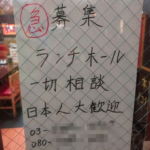 急募集
ランチホール
一切相談
日本人大歓迎
03-
080-